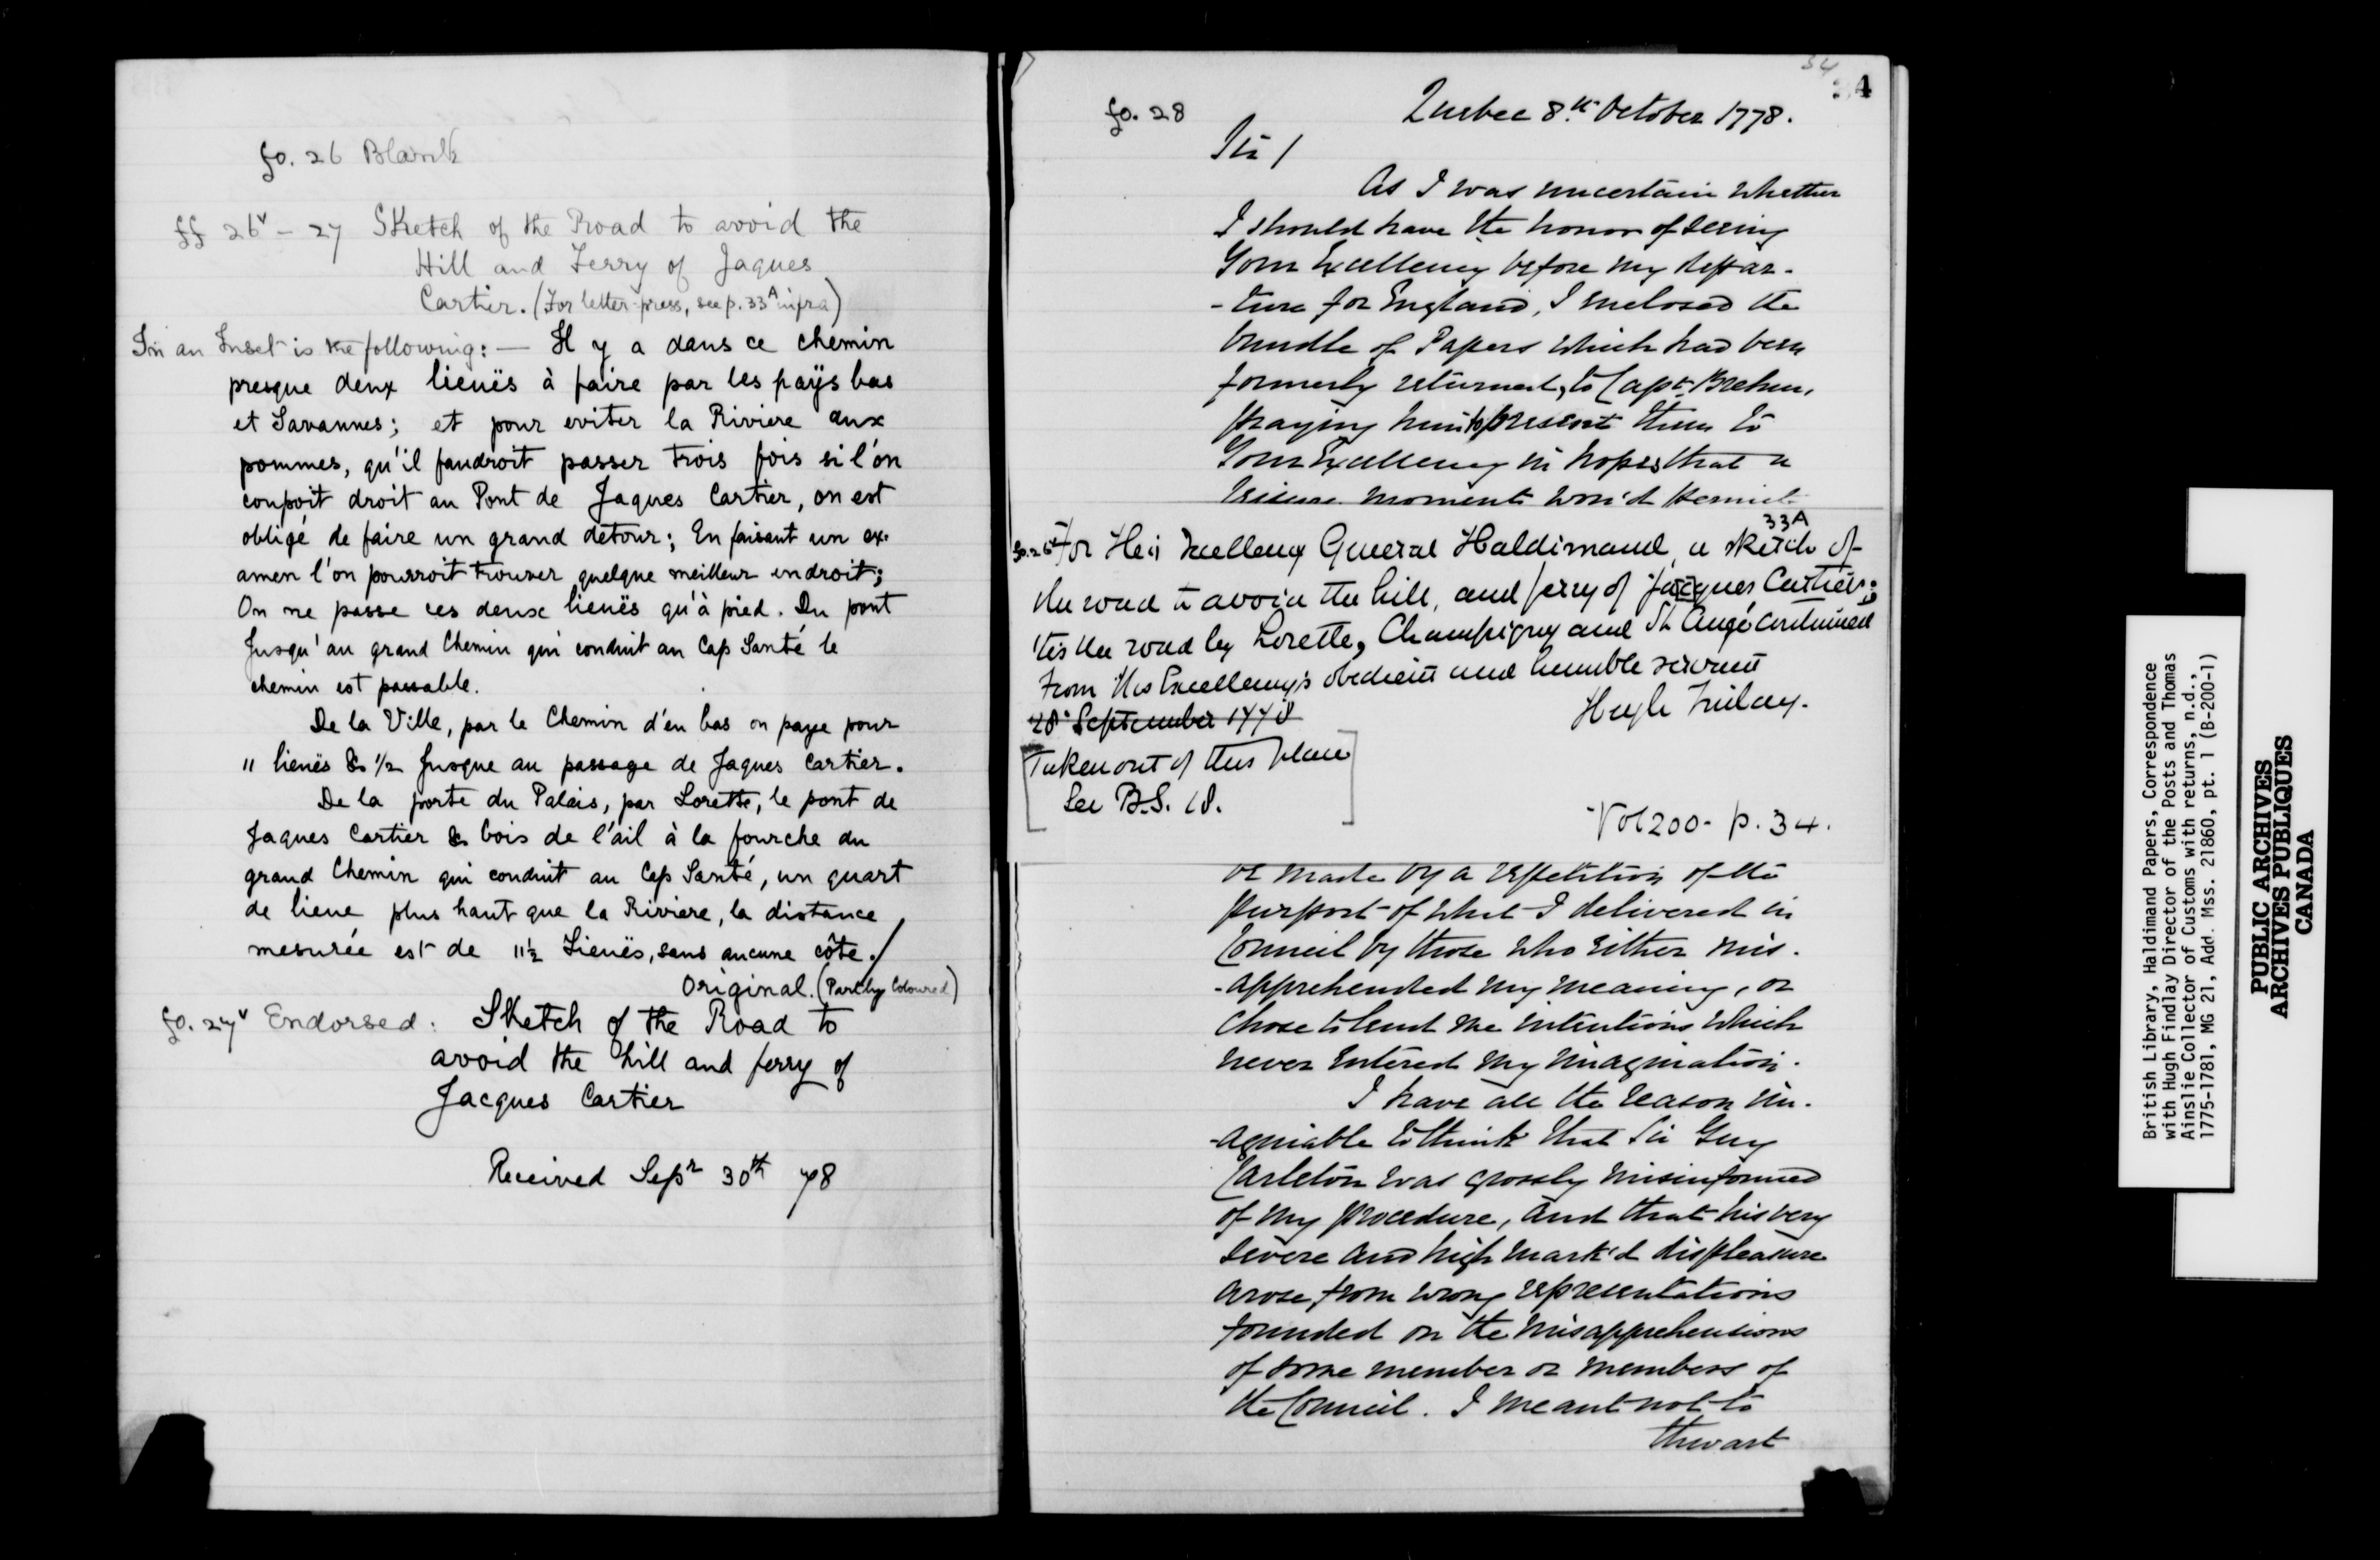 fo. 26 Blank
ff 26v - 27 Sketch of the Road to avoid the
Hill and Ferry of Jaques
Cartier. (For letter-press, see p. 33A infra)
In an Inset is the following: — Il y a dans ce chemin
presque deux lieuës à faire par les paÿs bas
et Savannes; et pour eviter la Riviere aux
pommes, qu'il faudroit passer trois fois si l'on
coupoit droit au Pont de Jaques Cartier, on est
obligé de faire un grand detour; En faisant un ex-
amen l'on pourroit trouver quelque meilleur endroit;
On ne passe ces deux lieuës qu'à pied. Du pont
Jusqu'au grand Chemin qui conduit au Cap Santé le
chemin est passable.
De la Ville, par le Chemin d'en bas on paye pour
11 lieuës & 1/2 Jusque au passage de Jaques Cartier.
De la porte du Palais, par Lorette, le pont de
Jaques Cartier & bois de l'ail à la fourche du
grand Chemin qui conduit au Cap Santé, un quart
de lieue plus haut que la Riviere, la distance
mesurée est de 11½ Lieuës, sans aucune côte./
Original. (Partly Coloured)
fo. 27v Endorsed: Sketch of the Road to
avoid the hill and ferry of
Jacques Cartier
Received Sepr 30th 78
34
fo. 28 Quebec 8.th October 1778.
Sir /
As I was uncertain whether
I should have the honor of seeing
Your Excellency before my depar-
-ture for England, I inclosed the
bundle of Papers which had been
formerly returned, to Capt. Brehm,
praying him to present them to
Your Excellency in hopes that a
leisure moment wou'd permit
33A
fo. 26v For His Excellency General Haldimand, a sketch of
the road to avoid the hill, and ferry of Jacques Cartier;
tis the road by Lorette, Champigny and St Augé continued
From His Excellency's obedient and humble servant
28 September 1778 Hugh Finlay.
[Taken out of this place
See B.S. 18.]
Vol 200 - p. 34.
be made by a repetition of the
purport of what I delivered in
Council by those who either mis-
-apprehended my meaning, or
chose to lend me intentions which
never entered my imagination.
I have all the reason im-
-aginable to think that Sir Guy
Carleton was grossly misinformed
of my procedure, and that his very
severe and high mark'd displeasure
arose from wrong representations
founded on the misapprehensions
of some member or members of
the Council. I meant not to
thwart
British Library, Haldimand Papers, Correspondence
with Hugh Findlay Director of the Posts and Thomas
Ainslie Collector of Customs with returns, n.d.,
1775-1781, MG 21, Add. Mss. 21860, pt. 1 (B-200-1)
PUBLIC ARCHIVES
ARCHIVES PUBLIQUES
CANADA